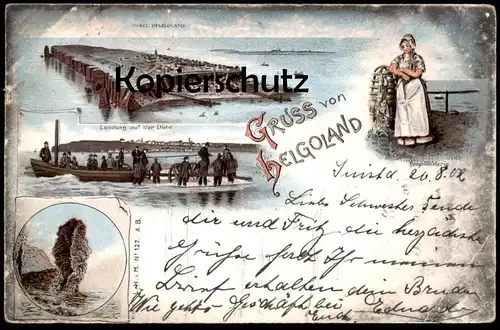 INSEL HELGOLAND
Kopierschutz
Landung auf der Düne
GRUSS von
HELGOLAND
Juist d. 26.8.02
Liebe Schwester sende
dir und Fritz die herzlichste
Grüsse habt Ihr meinen
Brief erhalten dein Bruder
Wie geht's Geschäft bei Eduard
Euch
H. i. M. No 127. A.B.